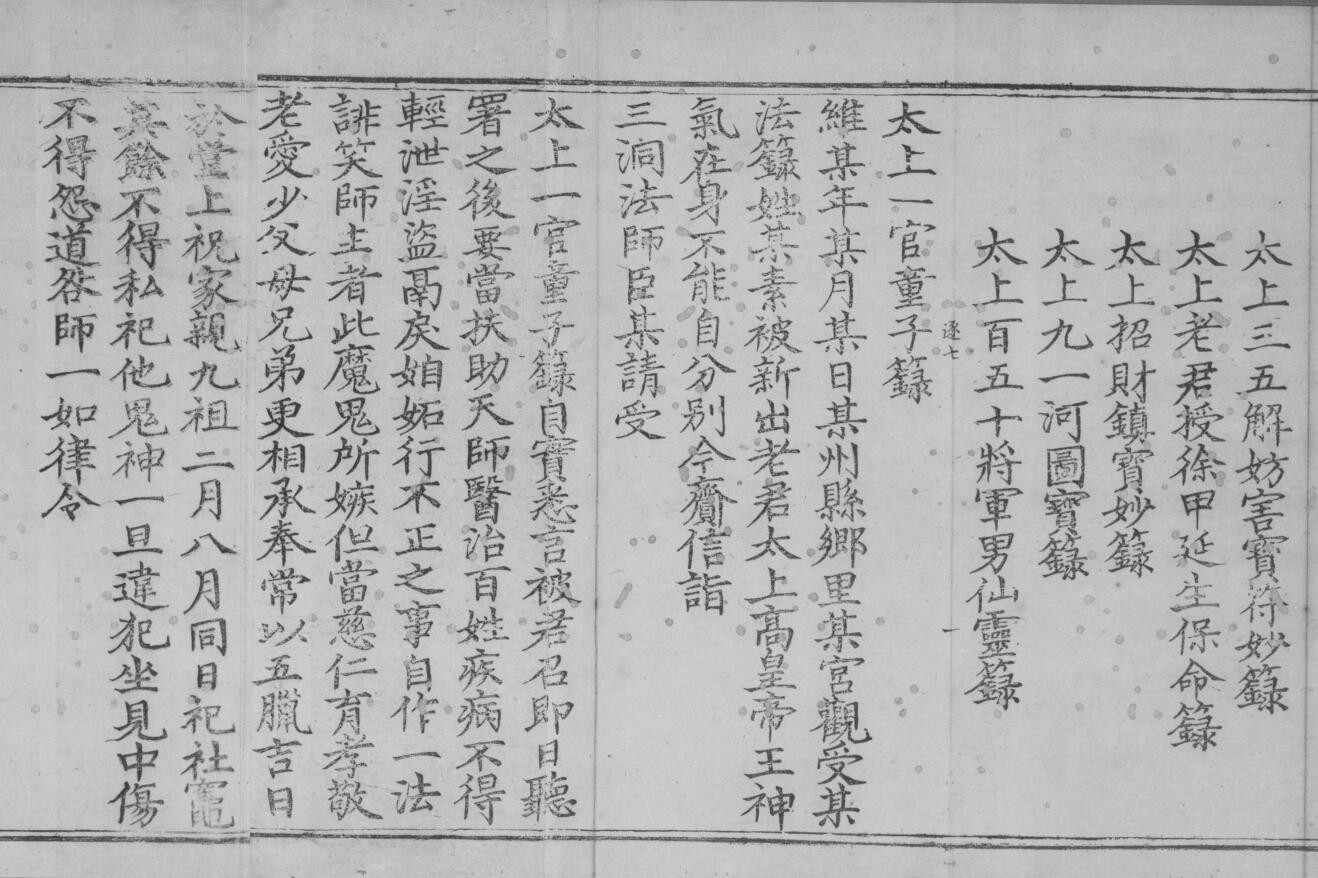 太上三五解妨害寶符妙籙
太上老君授徐甲延生保命籙
太上招財鎮寶妙籙
太上九一河圖寶籙
太上百五十將軍男仙靈籙
逐七
一
太上一官童子籙
維某年某月某日某州縣鄉里某宮觀受某
法籙姓某素被新出老君太上高皇帝王神
氣在身不能自分別今齎信詣
三洞法師臣某請受
太上一官童子籙自實悉言被君召即日聽
署之後要當扶助天師醫治百姓疾病不得
輕泄淫盜鬲戾妬行不正之事自作一法
誹笑師主者此魔鬼所嫉但當慈仁育孝敬
老愛少父母兄弟更相承奉常以五臘吉日
於堂上祝家親九祖二月八月同日祀社竈
其餘不得私祀他鬼神一旦違犯坐見中傷
不得怨道咎師一如律令